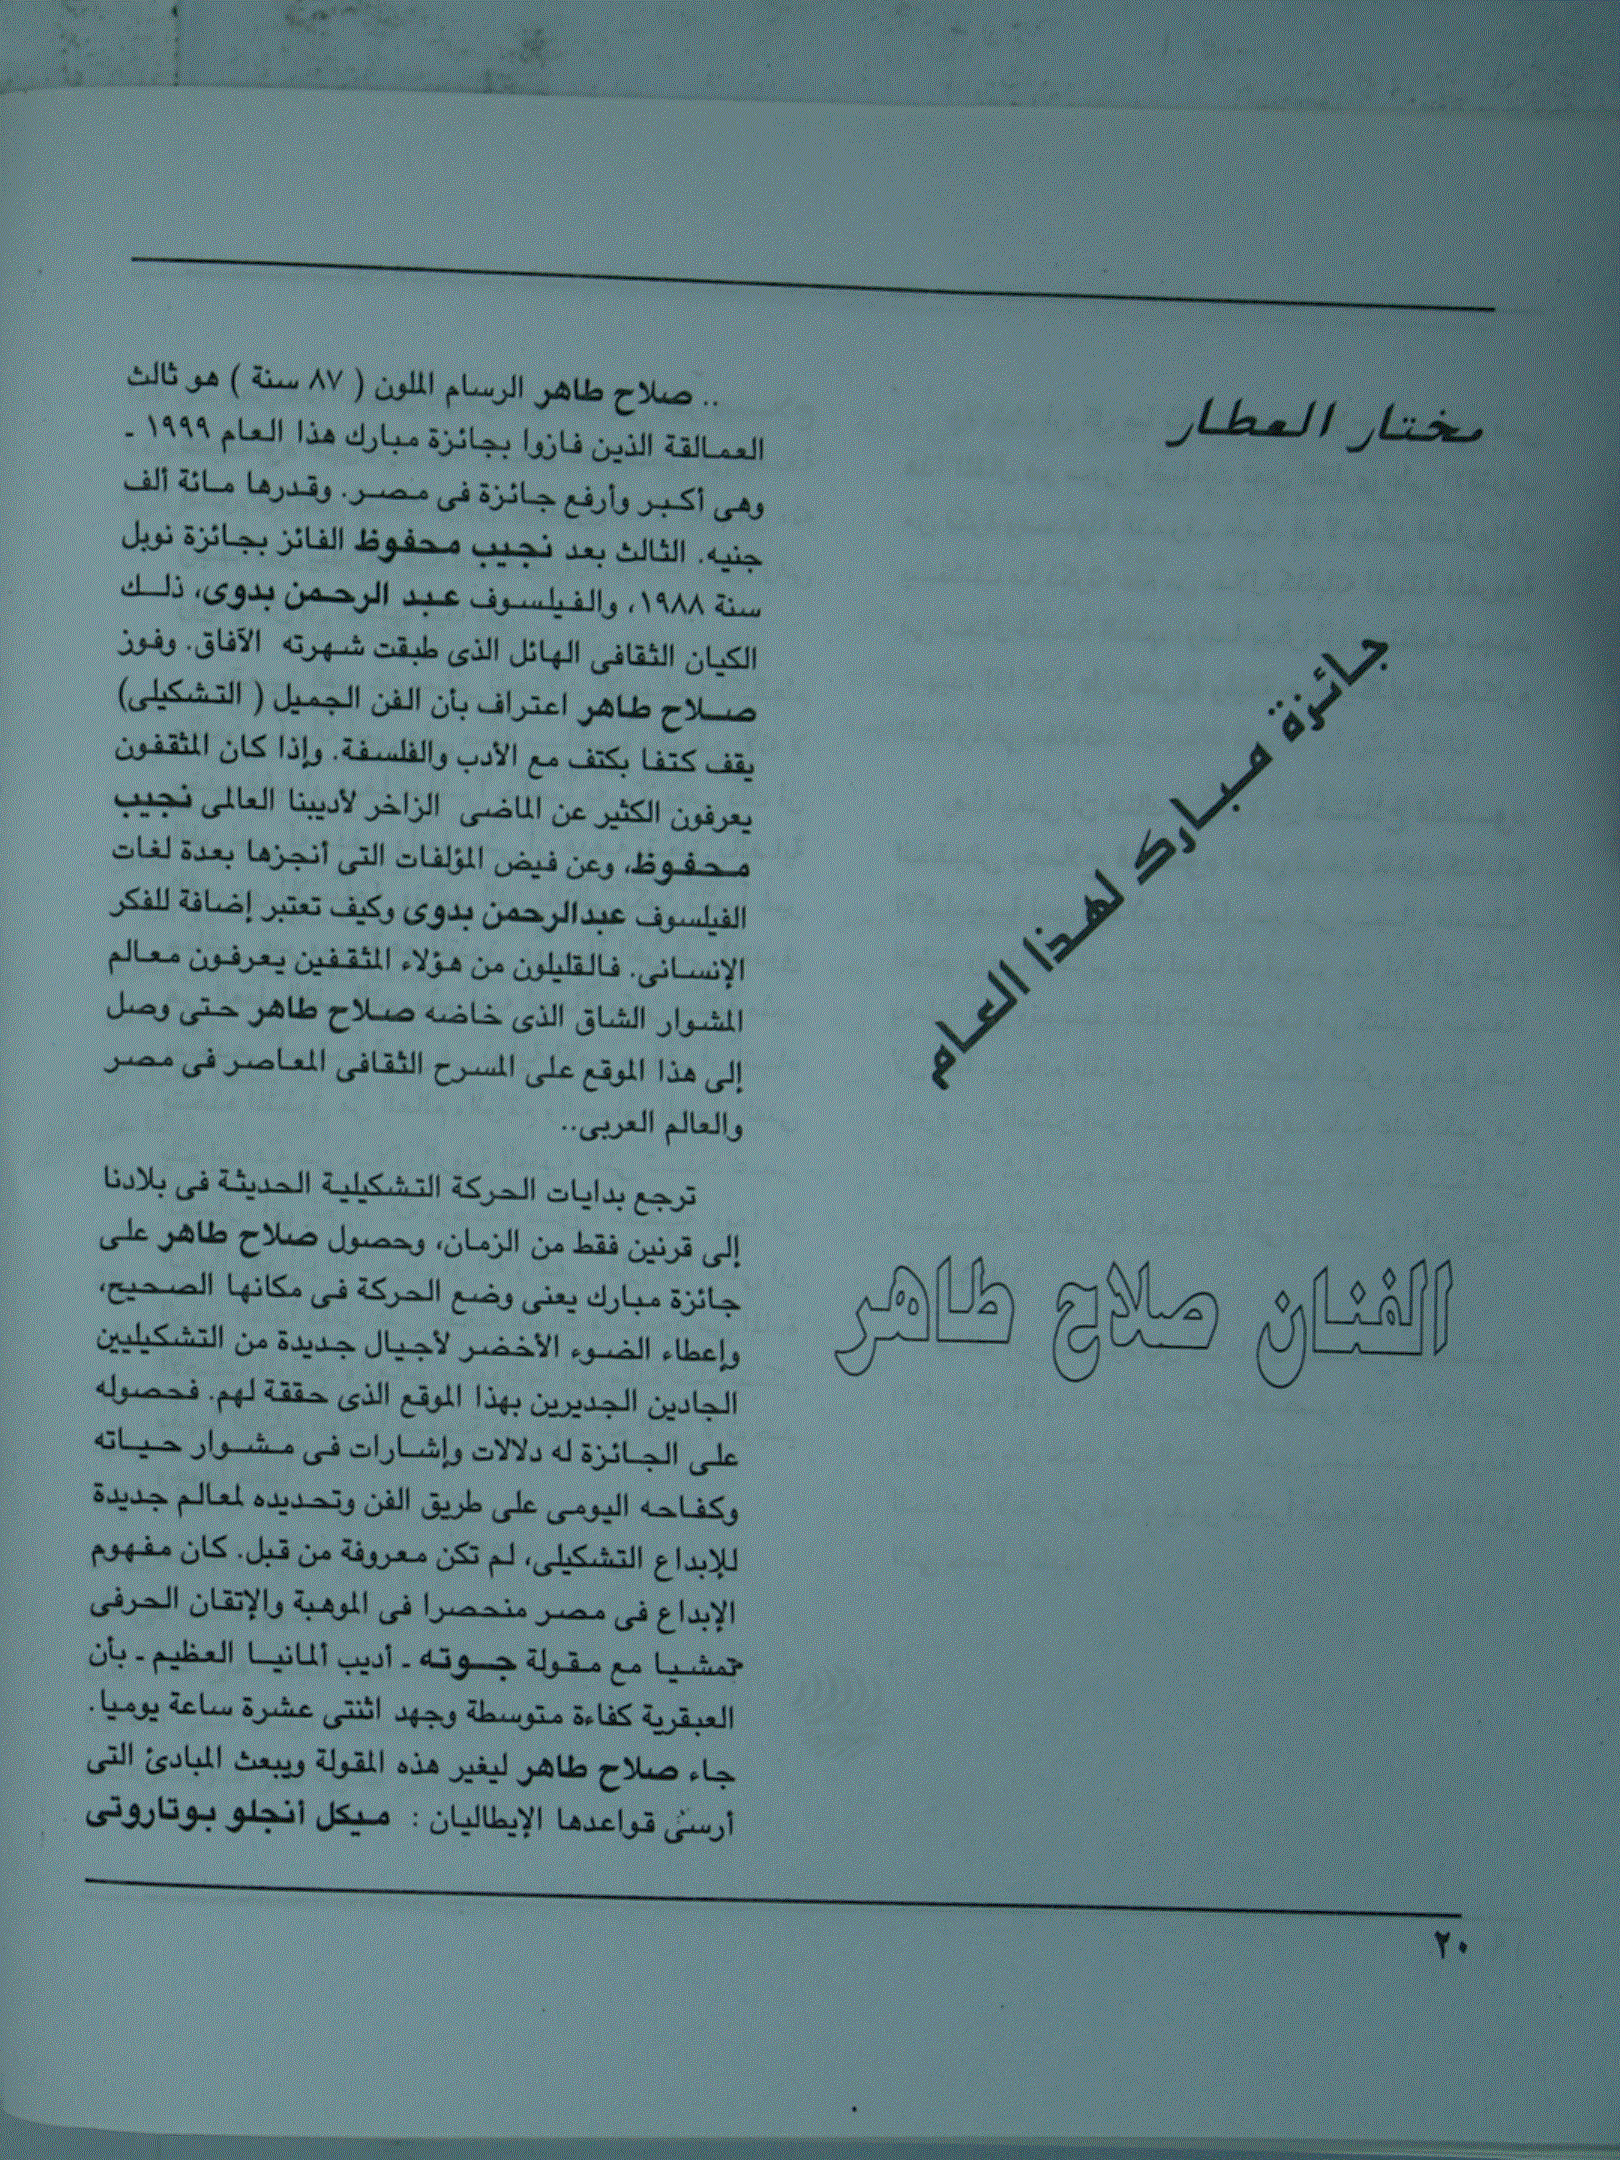 مختار العطار
جائزة مبارك لهذا العام
الفنان صلاح طاهر
.. صلاح طاهر الرسام الملون ( ٨٧ سنة ) هو ثالث
العمالقة الذين فازوا بجائزة مبارك هذا العام ١٩٩٩ ـ
وهى أكبر وأرفع جائزة فى مصر. وقدرها مائة ألف
جنيه. الثالث بعد نجيب محفوظ الفائز بجائزة نوبل
سنة ١٩٨٨، والفيلسوف عبد الرحمن بدوى، ذلك
الكيان الثقافى الهائل الذى طبقت شهرته الآفاق. وفوز
صلاح طاهر اعتراف بأن الفن الجميل ( التشكيلى)
يقف كتفا بكتف مع الأدب والفلسفة. وإذا كان المثقفون
يعرفون الكثير عن الماضى الزاخر لأديبنا العالمى نجيب
محفوظ، وعن فيض المؤلفات التى أنجزها بعدة لغات
الفيلسوف عبدالرحمن بدوى وكيف تعتبر إضافة للفكر
الإنسانى. فالقليلون من هؤلاء المثقفين يعرفون معالم
المشوار الشاق الذى خاضه صلاح طاهر حتى وصل
إلى هذا الموقع على المسرح الثقافى المعاصر فى مصر
والعالم العربى..
ترجع بدايات الحركة التشكيلية الحديثة فى بلادنا
إلى قرنين فقط من الزمان، وحصول صلاح طاهر على
جائزة مبارك يعنى وضع الحركة فى مكانها الصحيح،
وإعطاء الضوء الأخضر لأجيال جديدة من التشكيليين
الجادين الجديرين بهذا الموقع الذى حققة لهم. فحصوله
على الجائزة له دلالات وإشارات فى مشوار حياته
وكفاحه اليومى على طريق الفن وتحديده لمعالم جديدة
للإبداع التشكيلى، لم تكن معروفة من قبل. كان مفهوم
الإبداع فى مصر منحصرا فى الموهبة والإتقان الحرفى
تمشيا مع مقولة جوته ـ أديب ألمانيا العظيم ـ بأن
العبقرية كفاءة متوسطة وجهد اثنتى عشرة ساعة يوميا.
جاء صلاح طاهر ليغير هذه المقولة ويبعث المبادئ التى
أرسى قواعدها الإيطاليان : ميكل أنجلو بوتاروتى
٢٠